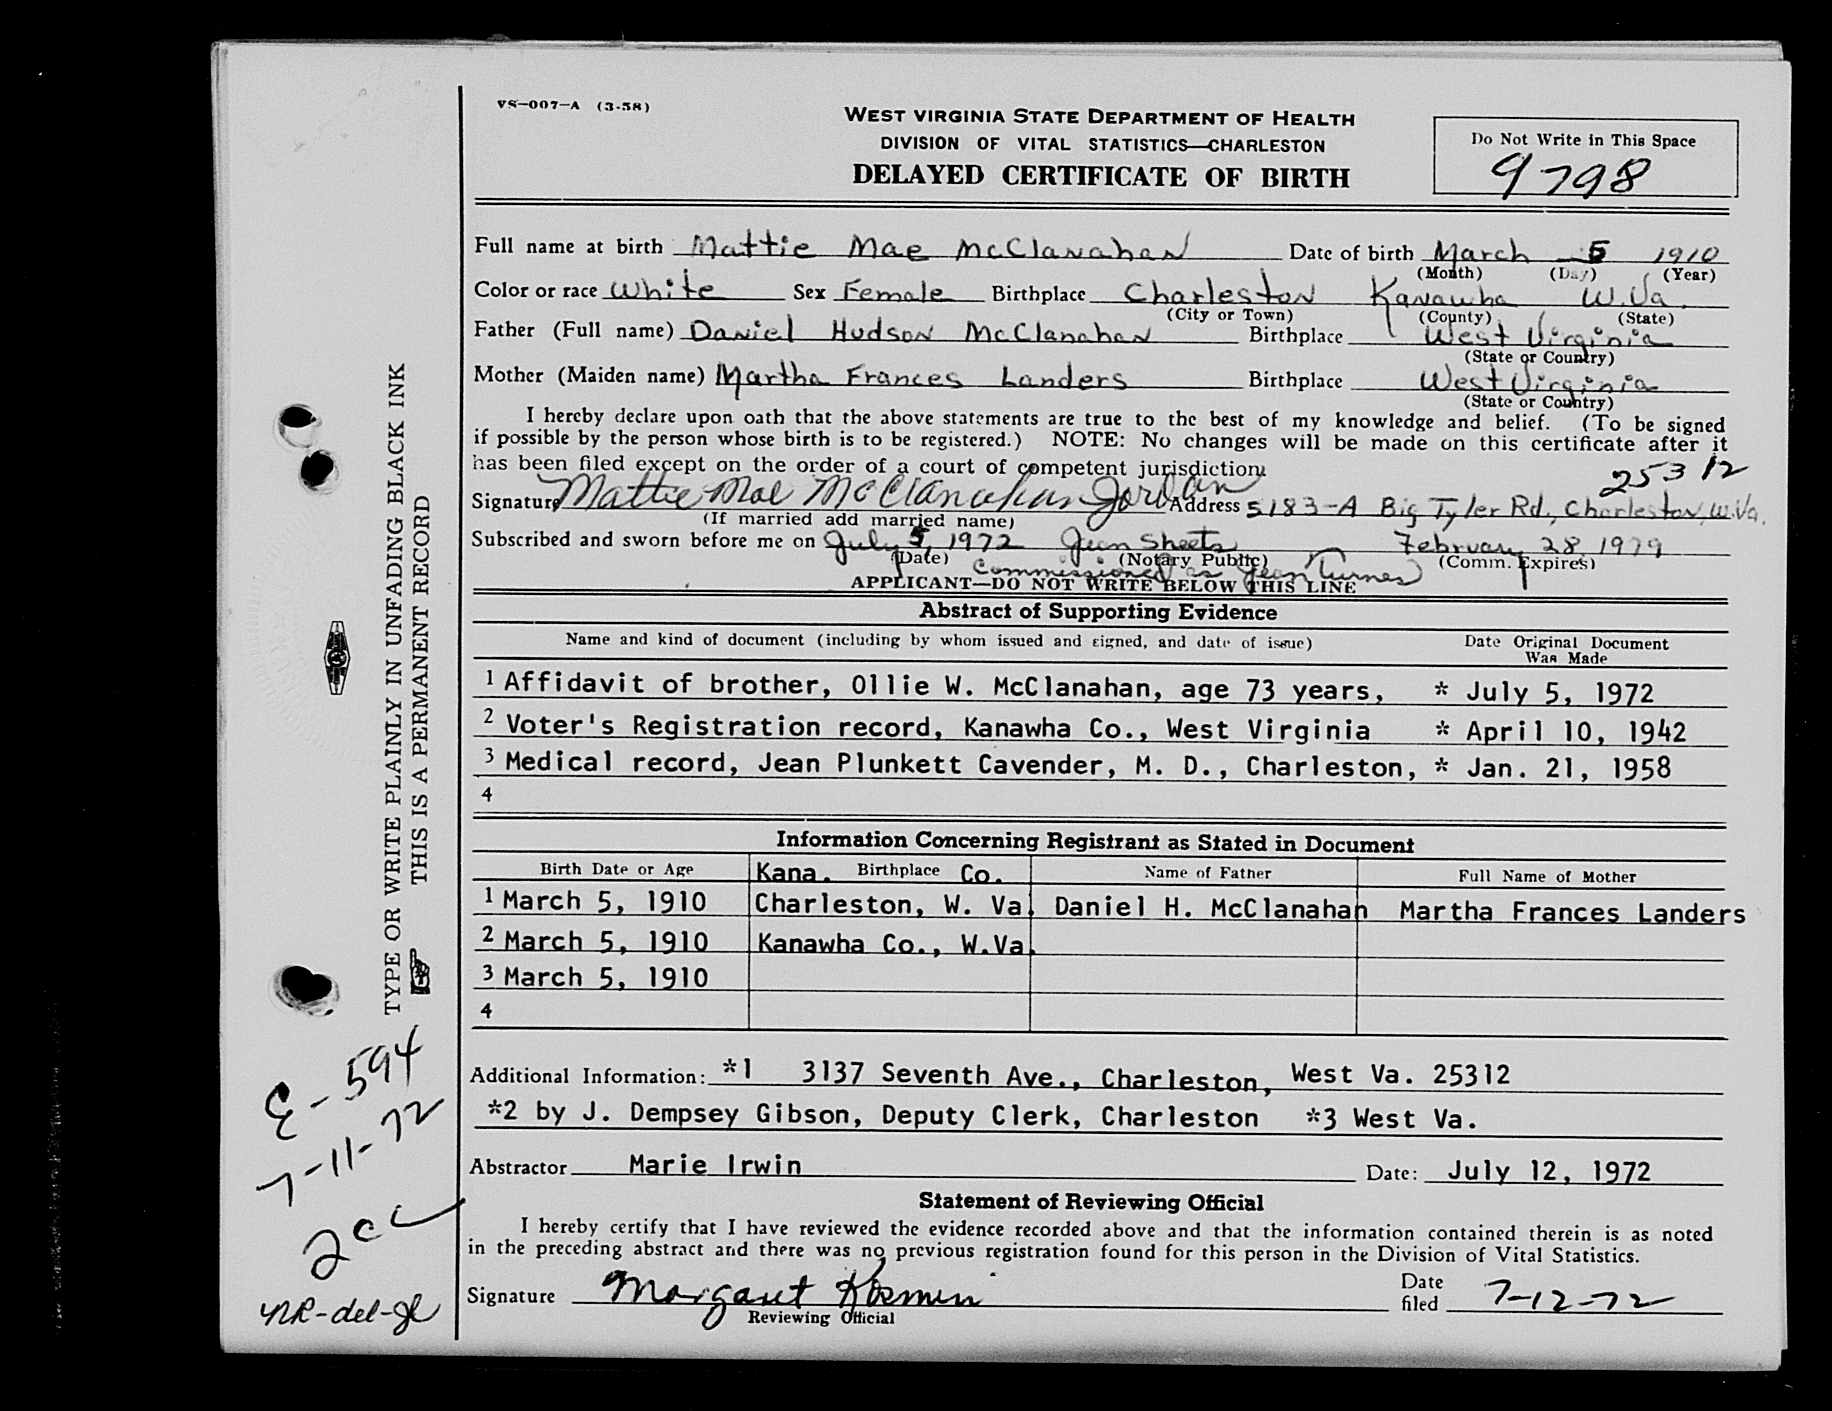 VS-007-A (3-58)
WEST VIRGINIA STATE DEPARTMENT OF HEALTH
DIVISION OF VITAL STATISTICS—CHARLESTON
DELAYED CERTIFICATE OF BIRTH
Do Not Write in This Space
9798
Full name at birth Mattie Mae McClanahan Date of birth March 5 1910
(Month) (Day) (Year)
Color or race White Sex Female Birthplace Charleston Kanawha W.Va.
(City or Town) (County) (State)
Father (Full name) Daniel Hudson McClanahan Birthplace West Virginia
(State or Country)
Mother (Maiden name) Martha Frances Landers Birthplace West Virginia
(State or Country)
I hereby declare upon oath that the above statements are true to the best of my knowledge and belief. (To be signed
if possible by the person whose birth is to be registered.) NOTE: No changes will be made on this certificate after it
has been filed except on the order of a court of competent jurisdiction.
25312
Signature Mattie Mae McClanahan Jordan Address 5183-A Big Tyler Rd., Charleston, W.Va.
(If married add married name)
Subscribed and sworn before me on July 5, 1972 Jean Sheets February 28, 1979
(Date) (Notary Public) (Comm. Expires)
Commissioned as Jean Turner
APPLICANT—DO NOT WRITE BELOW THIS LINE
Abstract of Supporting Evidence
Name and kind of document (including by whom issued and signed, and date of issue) Date Original Document
Was Made
1 Affidavit of brother, Ollie W. McClanahan, age 73 years, * July 5, 1972
2 Voter's Registration record, Kanawha Co., West Virginia * April 10, 1942
3 Medical record, Jean Plunkett Cavender, M. D., Charleston, * Jan. 21, 1958
4
Information Concerning Registrant as Stated in Document
Birth Date or Age Kana. Birthplace Co. Name of Father Full Name of Mother
1 March 5, 1910 Charleston, W. Va. Daniel H. McClanahan Martha Frances Landers
2 March 5, 1910 Kanawha Co., W.Va.
3 March 5, 1910
4
Additional Information: *1 3137 Seventh Ave., Charleston, West Va. 25312
*2 by J. Dempsey Gibson, Deputy Clerk, Charleston *3 West Va.
Abstractor Marie Irwin Date: July 12, 1972
Statement of Reviewing Official
I hereby certify that I have reviewed the evidence recorded above and that the information contained therein is as noted
in the preceding abstract and there was no previous registration found for this person in the Division of Vital Statistics.
Signature Margaret Date filed 7-12-72
Reviewing Official
TYPE OR WRITE PLAINLY IN UNFADING BLACK INK
THIS IS A PERMANENT RECORD
E-594
7-11-72
2cc
NR-del-gl